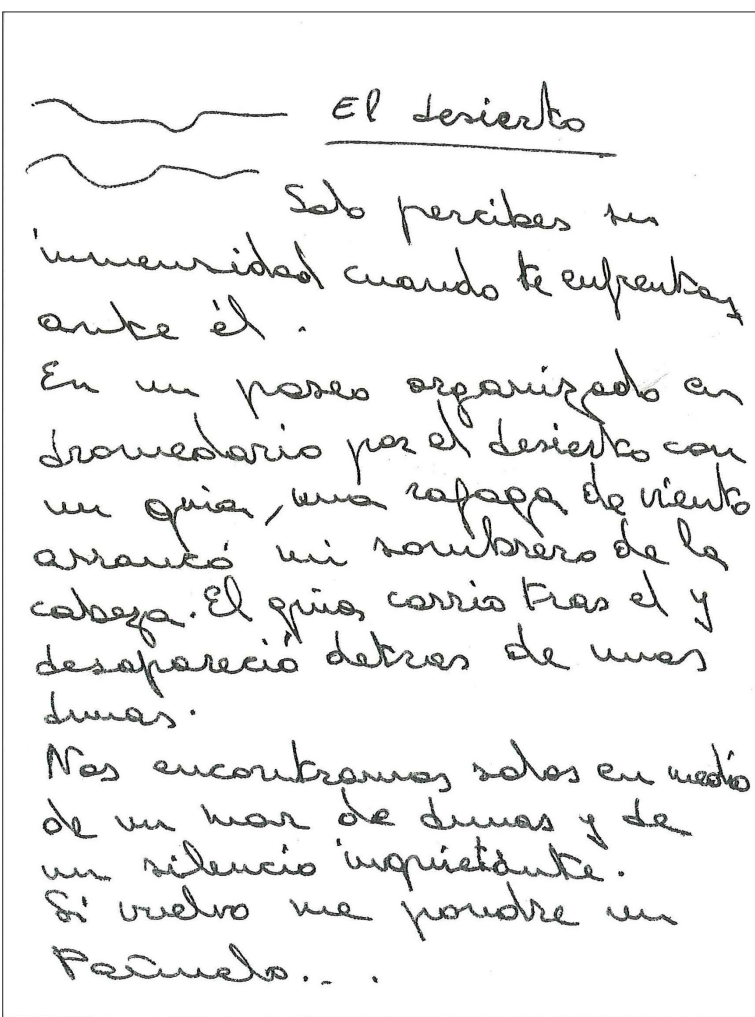 El desierto
Solo percibes su
inmensidad cuando te enfrentas
ante él.
En un paseo organizado en
dromedario por el desierto con
un guia, una rafaga de viento
arrancó mi sombrero de la
cabeza. El guia corrio tras el y
desapareció detras de unas
dunas.
Nos encontramos solos en medio
de un mar de dunas y de
un silencio inquietante.
Si vuelvo me pondre un
Pañuelo...